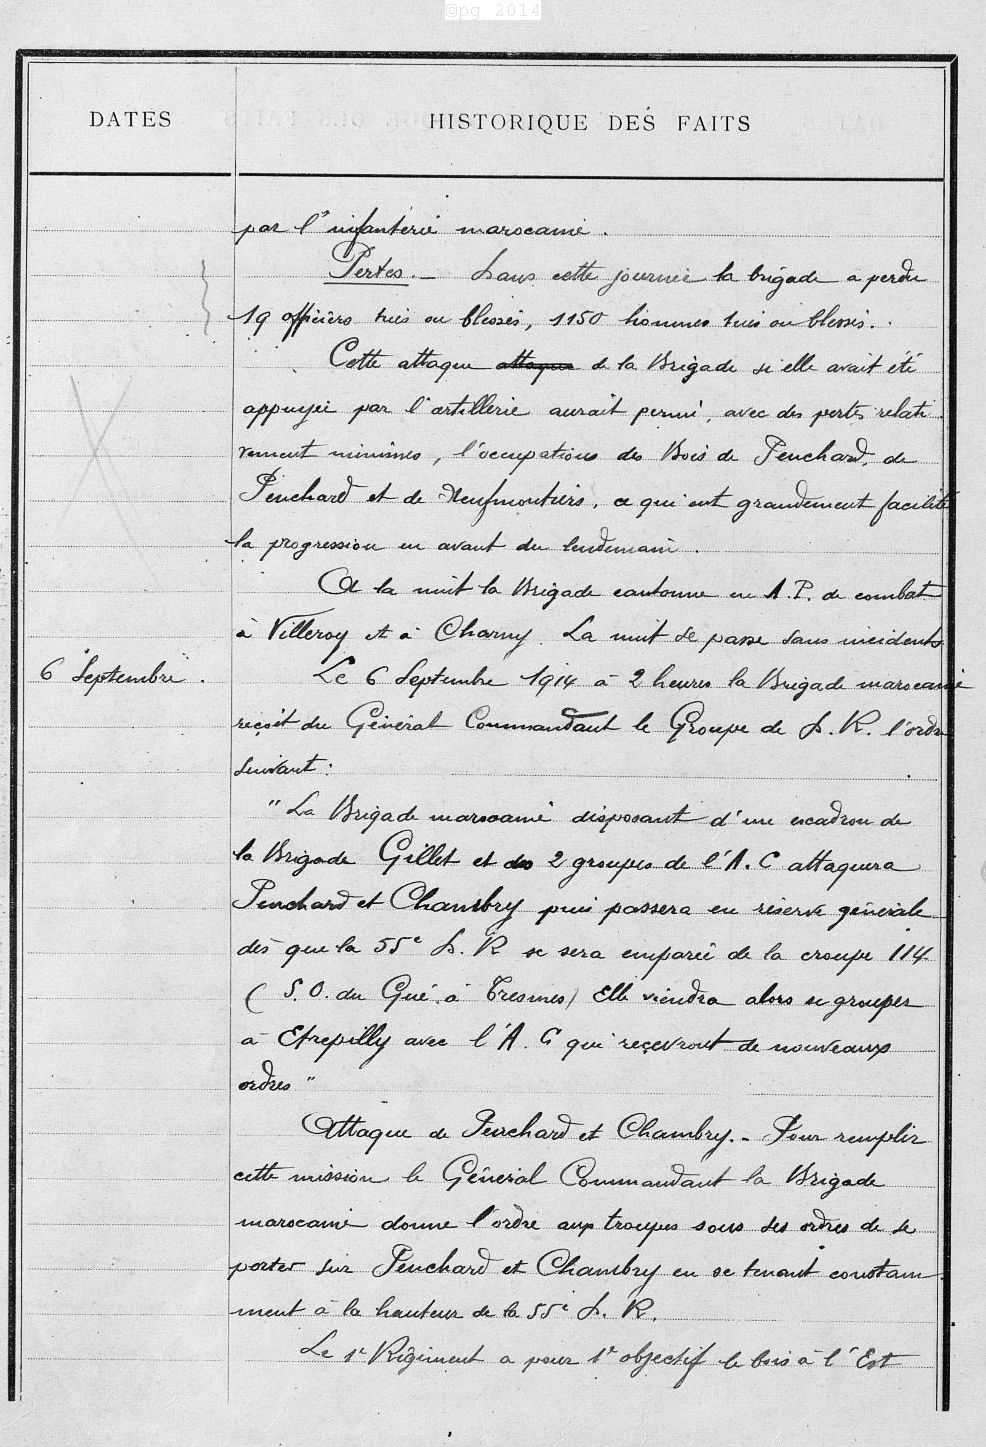 ©pg 2014
DATES
HISTORIQUE DES FAITS
par l'infanterie marocaine.
Pertes. — Dans cette journée la brigade a perdu
19 officiers tués ou blessés, 1150 hommes tués ou blessés.
Cette attaque attaque de la Brigade si elle avait été
appuyée par l'artillerie aurait permi, avec des pertes relati
vement minimes, l'occupations des Bois de Penchard, de
Penchard et de Neufmontiers, ce qui eut grandement facilité
la progression en avant du lendemain.
A la nuit la Brigade cantonne en A.P. de combat
à Villeroy et à Charny. La nuit se passe sans incidents
6 Septembre.
Le 6 Septembre 1914 à 2 heures la Brigade marocaine
reçoit du Général Commandant le Groupe de D.R. l'ordre
suivant:
"La Brigade marocaine disposant d'un escadron de
la Brigade Gillet et de 2 groupes de l'A.C attaquera
Penchard et Chambry puis passera en réserve générale
dès que la 55e D.R se sera emparée de la croupe 114
(S.O. du Gué à Tresmes) Elle viendra alors se grouper
à Etrepilly avec l'A.C qui reçevront de nouveaux
ordres"
Attaque de Penchard et Chambry. - Pour remplir
cette mission le Général Commandant la Brigade
marocaine donne l'ordre aux troupes sous ses ordres de se
porter sur Penchard et Chambry en se tenant constam-
ment à la hauteur de la 55e D.R.
Le 1e Régiment a pour 1e objectif le bois à l'Est